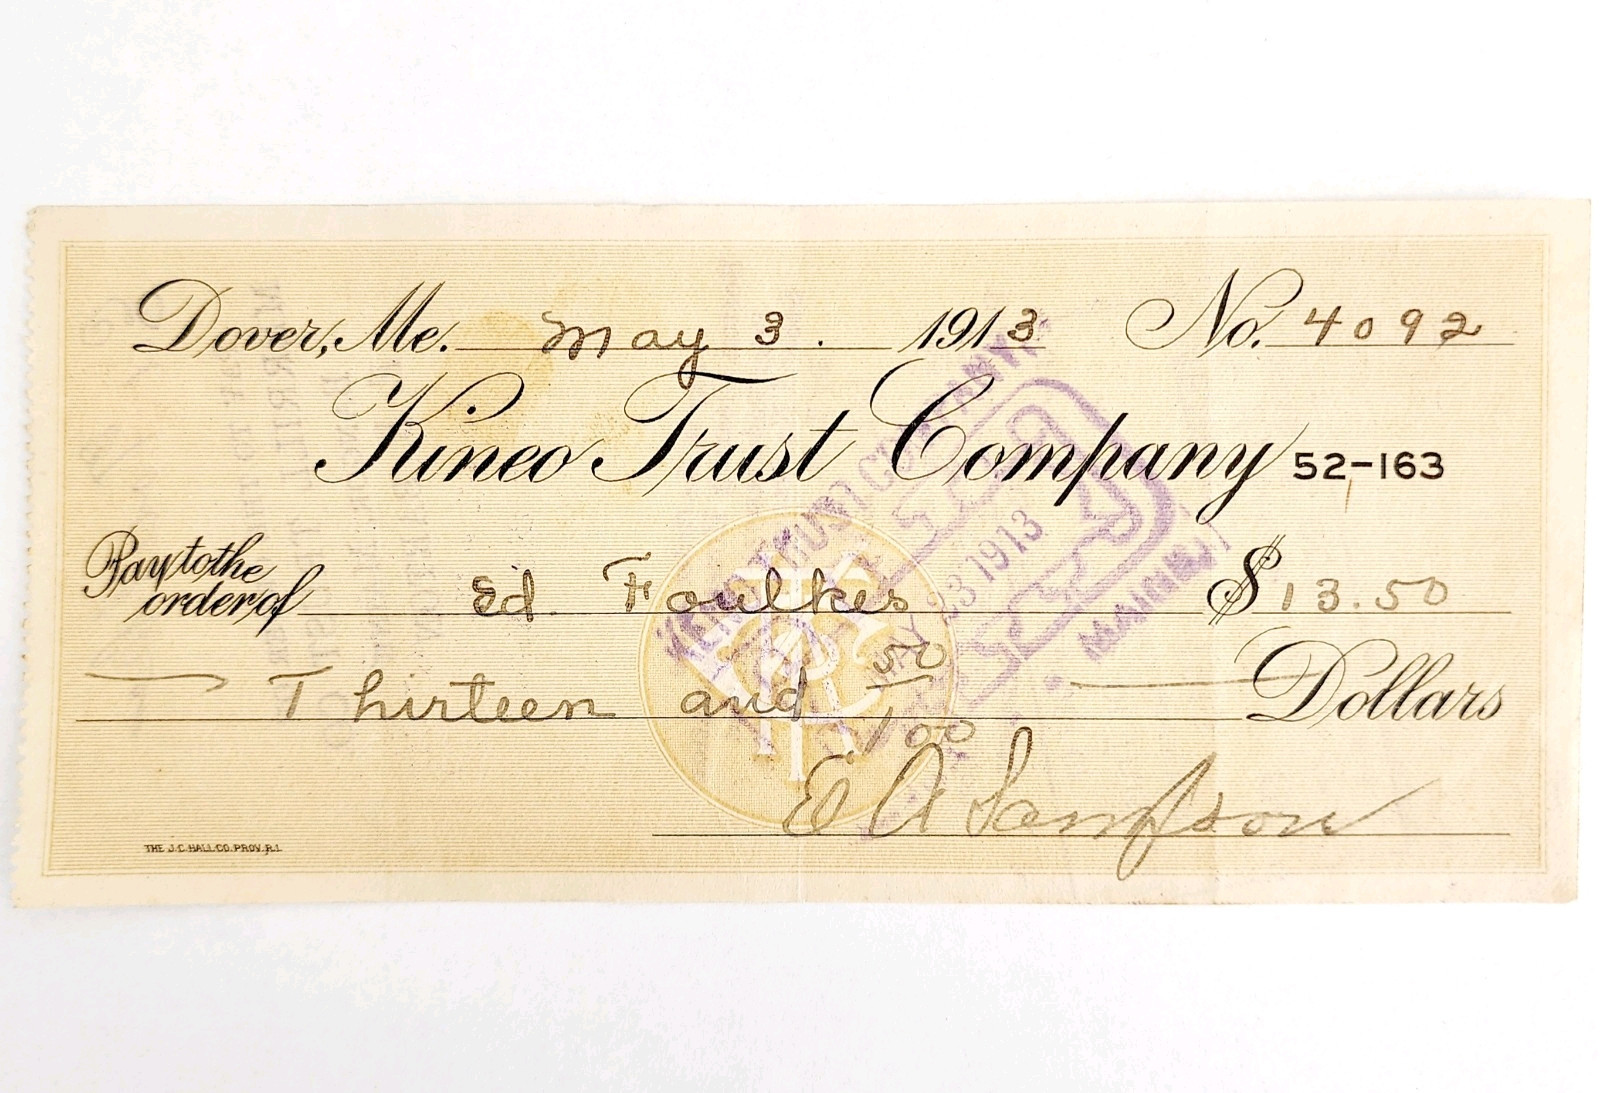 Dover, Me. May 3. 1913 No. 4092
Kineo Trust Company 52-163
Pay to the order of Ed. Foulkes $13.50
Thirteen and 50/100 Dollars
E A Sampson
THE J.C. HALL CO. PROV. R.I.
KINEO TRUST COMPANY
PAID
MAY 23 1913
MAINE
KTC